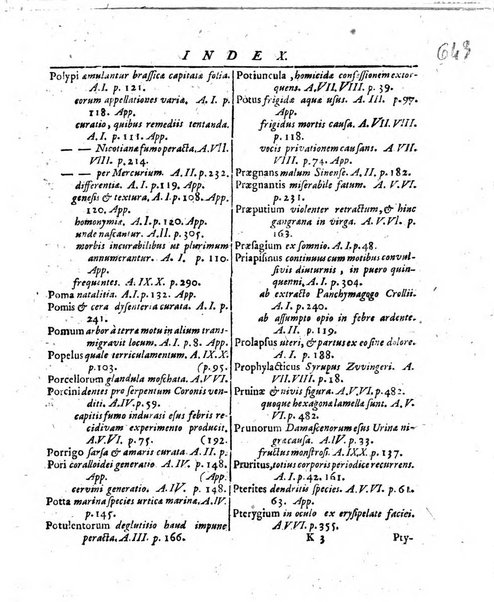 INDEX.
648
Polypi æmulantur brassicæ capitatæ folia.
A.I. p. 121.
eorum appellationes variæ. A. I. p.
118. App.
curatio, quibus remediis tentanda.
A. I. p. 111. App.
— — Nicotianæ fumo peracta. A. VII.
VIII. p. 214.
— — per Mercurium. A. II. p. 232.
differentiæ. A. I. p. 119. App.
genesis & textura. A. I. p. 108. App.
120. App.
homonymia. A. I. p. 120. App.
unde nascantur. A. II. p. 305.
morbis incurabilibus ut plurimum
annumerantur. A. I. p. 110.
App.
frequentes. A. IX. X. p. 290.
Poma natalitia. A.I. p. 132. App.
Pomis & cera dysenteria curata. A. I. p.
241.
Pomum arbor à terræ motu in alium trans-
migravit locum. A. I. p. 8. App.
Popelus quale terriculamentum. A. IX. X.
p. 103. (p. 95.
Porcellorum glandula moschata. A. VI.
Porcini dentes pro serpentum Coronis ven-
diti. A. IV. p. 59.
capitis fumo indurasi esus febris re-
cidivam experimento producit.
A. VI. p. 75. (192.
Porrigo sarsa & amaris curata. A. II. p.
Pori coralloidei generatio. A. IV. p. 148.
App. (App.
cervini generatio. A. IV. p. 148.
Potta marina species urticæ marinæ. A. IV.
p. 145.
Potulentorum deglutitio haud impune
peracta. A. III. p. 166.
Potiuncula, homicidæ confessionem extor-
quens. A. VII. VIII. p. 39.
Potus frigidæ aquæ usus. A. III. p. 97.
App.
frigidus mortis causa. A. VII. VIII.
p. 118.
vocis privationem causans. A. VII.
VIII. p. 74. App.
Prægnans malum Sinense. A. II. p. 182.
Prægnantis miserabile fatum. A. V. VI.
p. 231.
Præputium violenter retractum, & hinc
gangræna in virga. A. V. VI. p.
163.
Præsagium ex somnio. A. I. p. 48.
Priapismus continuus cum motibus convul-
sivis diuturnis, in puero quin-
quenni, A. I. p. 304.
ab extracto Panchymagogo Crollii.
A. I. p. 240.
ab assumpto opio in febre ardente.
A. II. p. 119.
Prolapsus uteri, & partus ex eo sine dolore.
A. I. p. 188.
Prophylacticus Syrupus Zvvingeri. A.
VI. VII. p. 18.
Pruinæ & nivis figura. A. V. VI. p. 482.
quoque hexagonæ lamellæ sunt. A. V.
VI. p. 482.
Prunorum Damascenorum esus Urinæ ni-
græ causa. A. IV. p. 33.
fructus monstrosi. A. IX. X. p. 137.
Pruritus, totius corporis periodice recurrens.
A. I. p. 42. 161.
Pterites dendritis species. A. V. VI. p. 61.
63. App.
Pterygium in oculo ex erysipelate faciei.
A. V. VI. p. 355.
K 3 Pty-